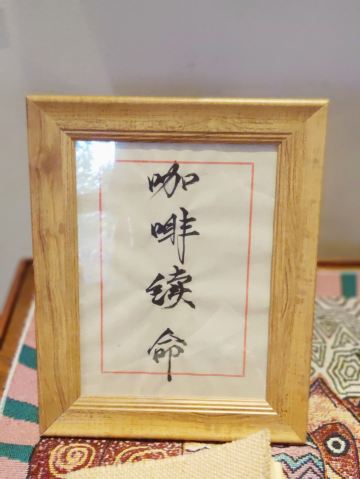 咖啡续命